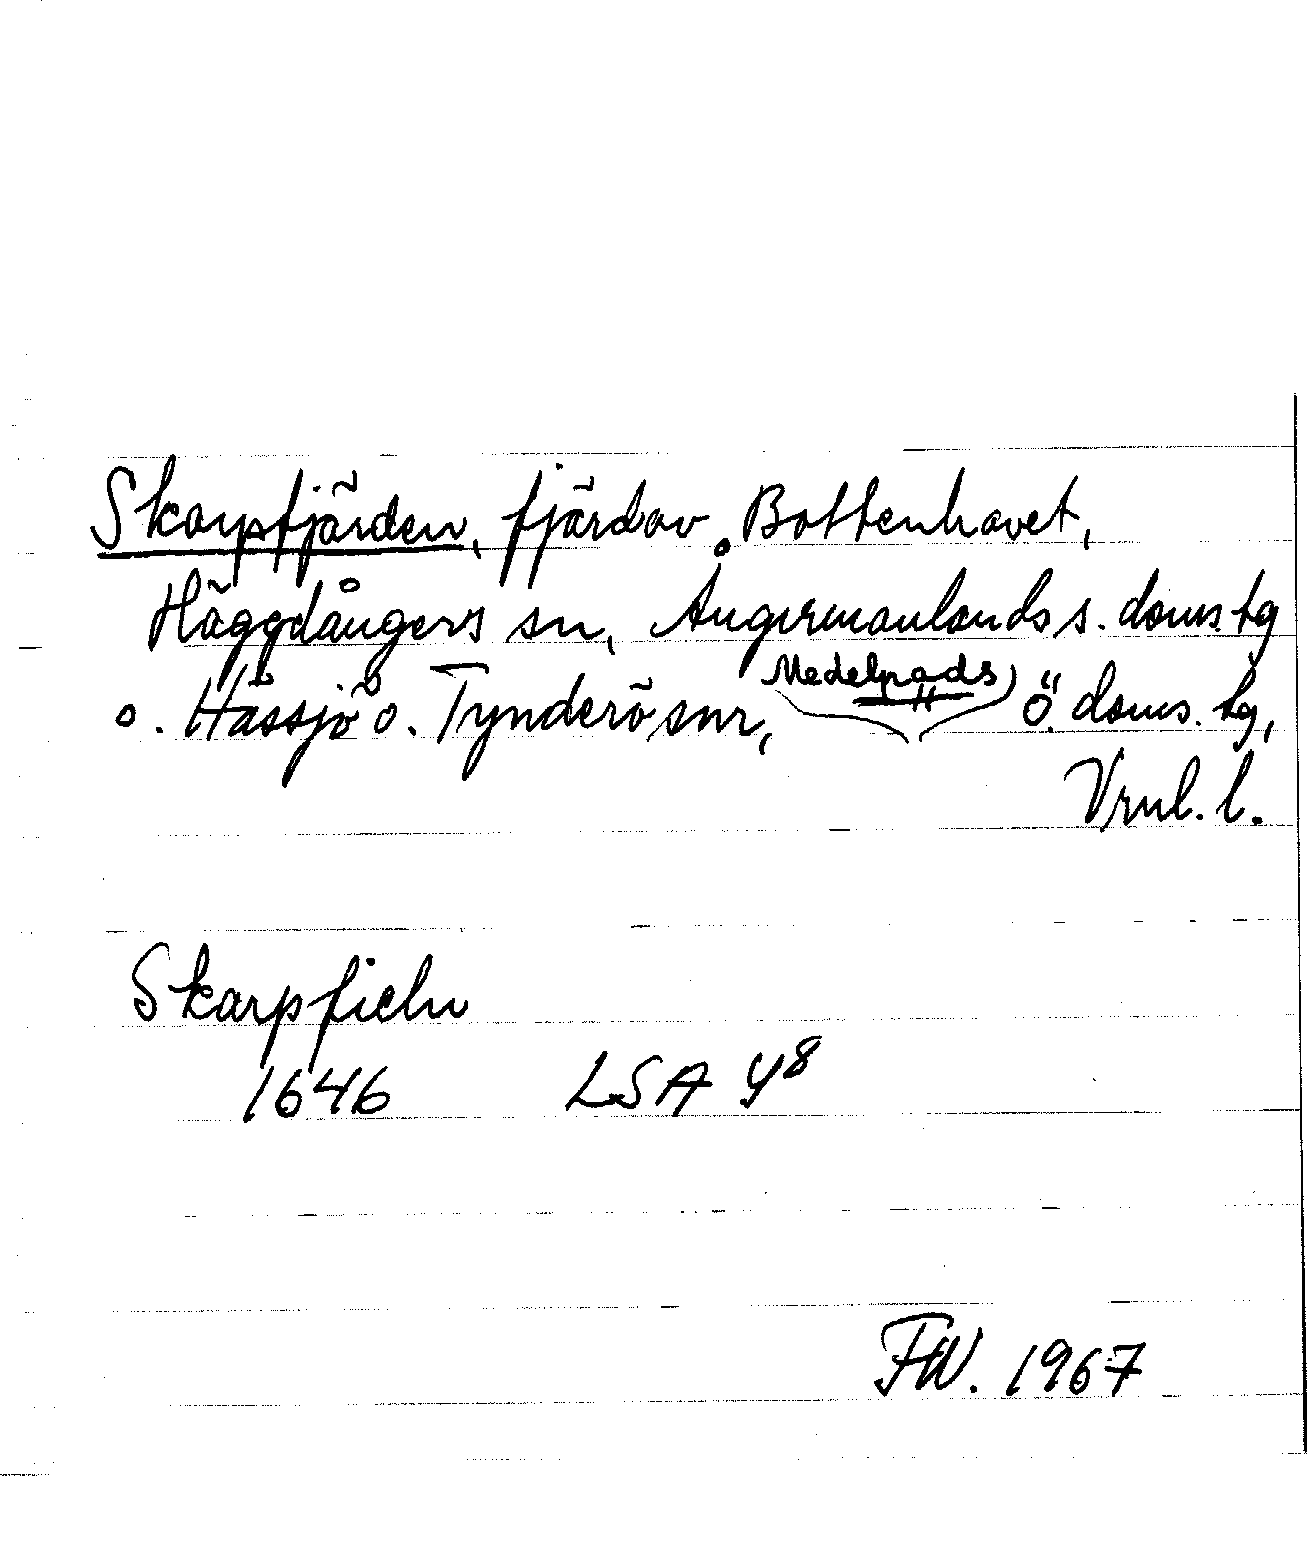 Skarpfjärden, fjärd av Bottenhavet,
Häggdångers sn, Ångermanlands s. doms. tg
o. Hässjö o. Tynderö snr, Medelpads ö. doms. tg,
Vrnl. l.
Skarpfieln
1646 LSA Y8
FW. 1967